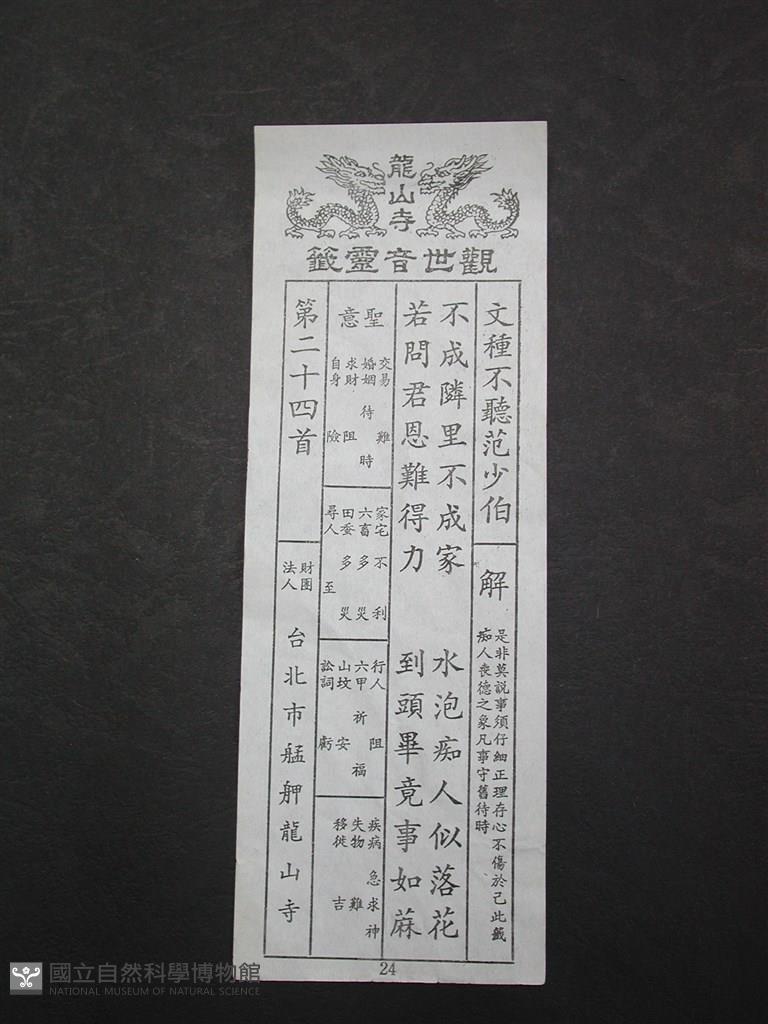 龍山寺
觀世音靈籤
文種不聽范少伯
解
是非莫說事須仔細正理存心不傷於己此籤
痴人喪德之象凡事守舊待時
不成隣里不成家
水泡痴人似落花
若問君恩難得力
到頭畢竟事如蔴
聖意
交易 難
婚姻 待時
求財 阻
自身 險
家宅 不利
六畜 多災
田蚕 多災
尋人 至
行人 阻
六甲 祈福
山坟 安
訟詞 虧
疾病 急求神
失物 難
移徙 吉
第二十四首
財團
法人
台北市艋舺龍山寺
24
國立自然科學博物館
NATIONAL MUSEUM OF NATURAL SCIENCE